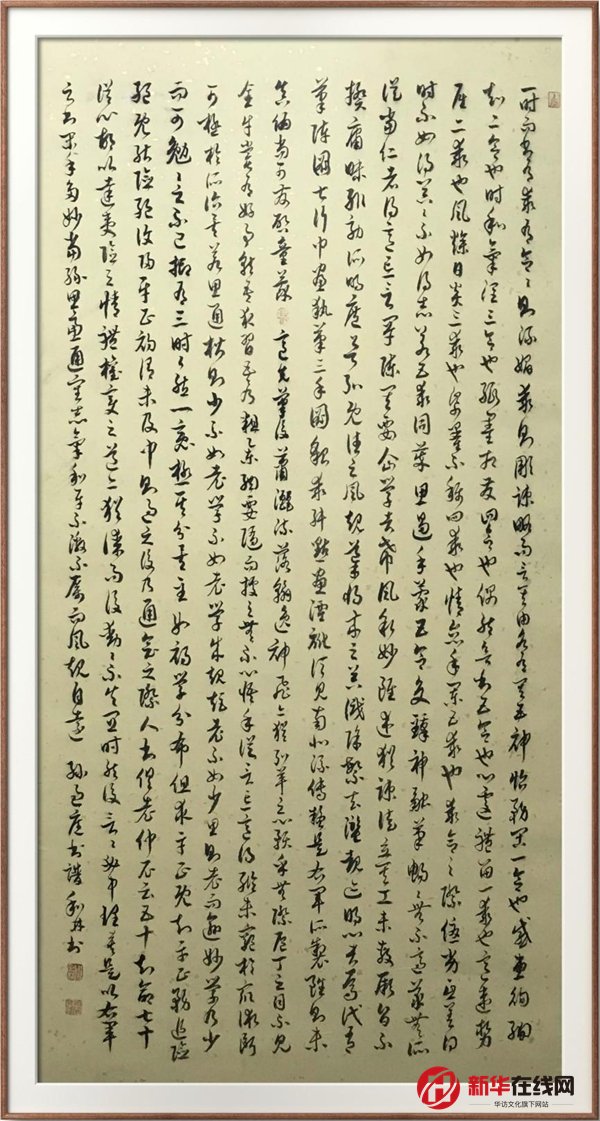 一时而书有乖有合合则流媚乖则雕疏略而言其由各有其五神怡务闲一合也感惠徇
知二合也时和气润三合也纸墨相发四合也偶然欲书五合也心遽体留一乖也意违势
屈二乖也风燥日炎三乖也纸墨不称四乖也情怠手阑五乖也乖合之际优劣互差得
时不如得器得器不如得志若五乖同萃思遏手蒙五合交臻神融笔畅畅无不适蒙无所
从当仁者得意忘言罕陈其要企学者希风叙妙虽述犹疏徒立其工未敷厥旨不
揆庸昧辄效所明庶欲弘既往之风规导将来之器识除繁去滥睹迹明心者焉代有
笔阵图七行中画执笔三手图貌乖舛点画湮讹顷见南北流传疑是右军所制虽则未
真伪尚可发启童蒙意先笔后潇洒流落翰逸神飞亦犹弘羊之心预乎无际庖丁之目不见
全牛尝有好事就吾求习吾乃粗举纲要随而授之无不心悟手从言忘意得纵未穷于众术断
可极于所诣矣若思通楷则少不如老学不如老学成规矩老不如少思则老而逾妙学乃少
而可勉勉之不已抑有三时时然一变极其分矣至如初学分布但求平正既知平正务追险
绝既能险绝复归平正初谓未及中则过之后乃通会之际人书俱老仲尼云五十知命七十
从心故以达夷险之情体权变之道亦犹谋而后动动不失宜时然后言言必中理矣是以右军
之书末年多妙当缘思虑通审志气和平不激不厉而风规自远 孙过庭书谱
新华在线网
华访文化旗下网站